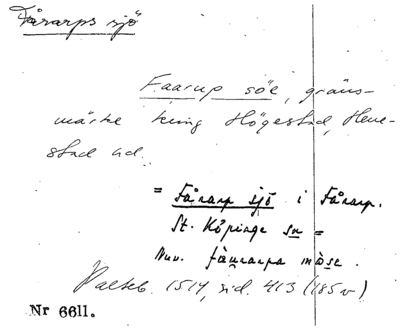 Fårarps sjö
Faarup söe, gräns-
märke kring Högestad, Hene-
stad sd.
= Fårarp sjö i Fårarp.
St. Köpinge sn =
Nuv. fåurarpa måse.
Palteb. 1514, sid. 413 (185 v)
Nr 6611.